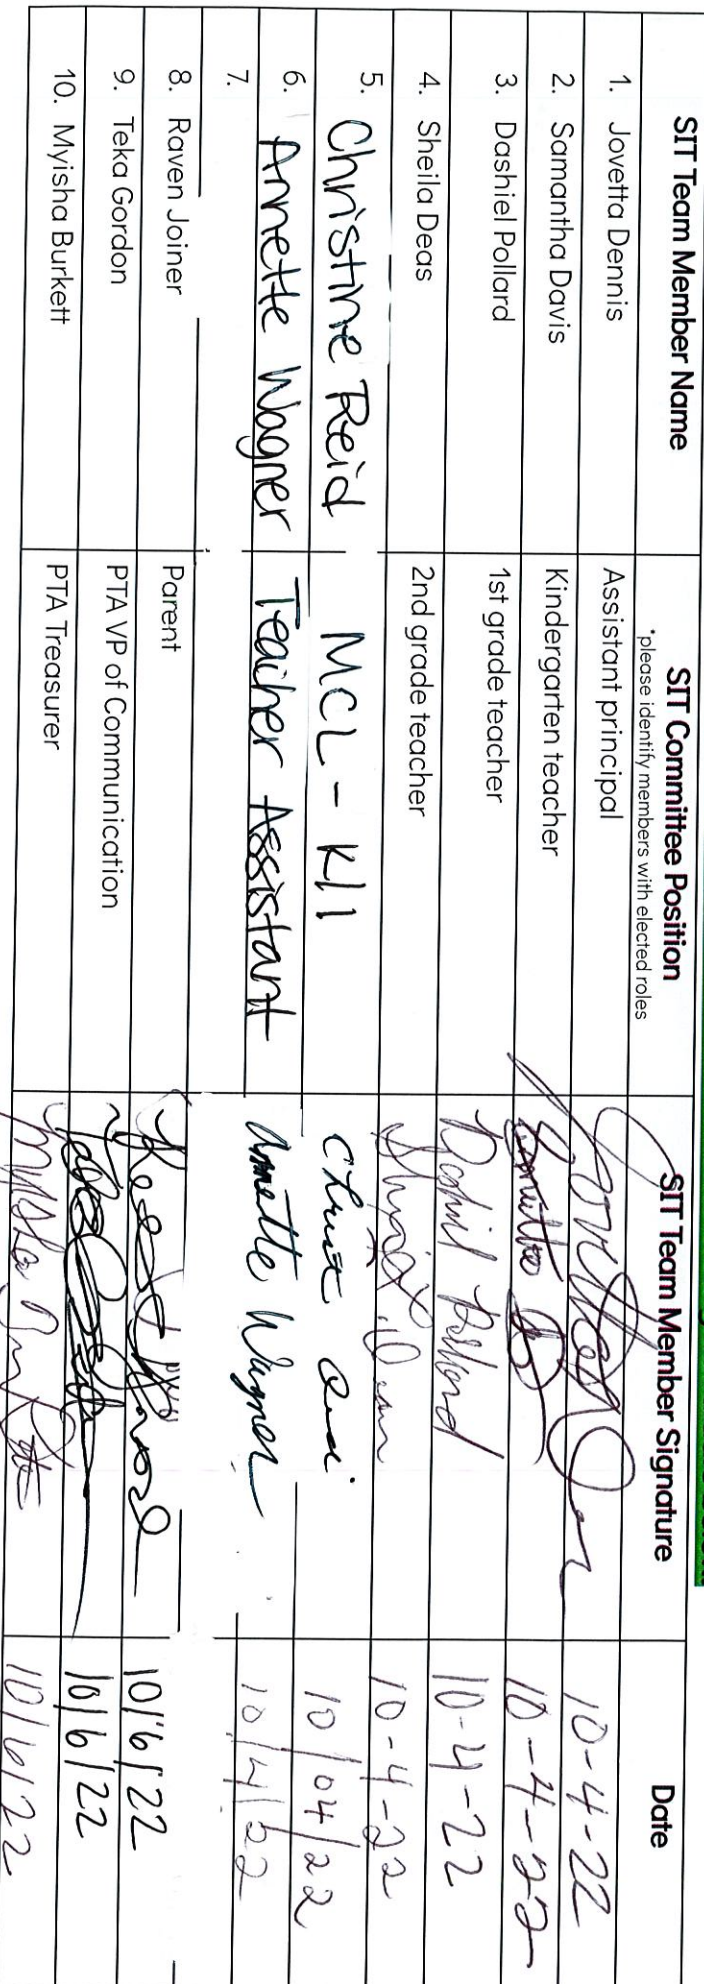 SIT Team Member Name SIT Committee Position SIT Team Member Signature Date
*please identify members with elected roles
1. Jovetta Dennis Assistant principal 10-4-22
2. Samantha Davis Kindergarten teacher 10-4-22
3. Dashiel Pollard 1st grade teacher Dashiel Pollard 10-4-22
4. Sheila Deas 2nd grade teacher 10-4-22
5. Christine Reid MCL - K/1 10/04/22
6. Annette Wagner Teacher Assistant Annette Wagner 10/4/22
7.
8. Raven Joiner Parent 10/6/22
9. Teka Gordon PTA VP of Communication 10/6/22
10. Myisha Burkett PTA Treasurer 10/6/22